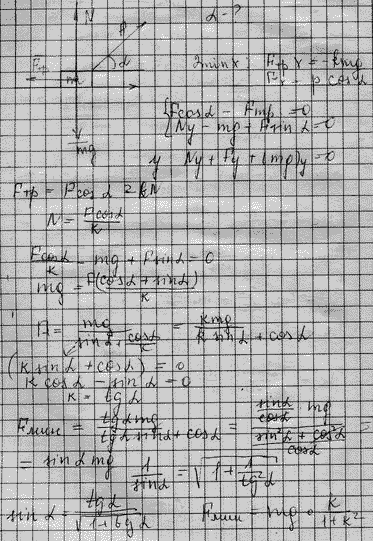 N F α - ?
Fтр α
m
mg
Fтр x = -kmg
Fx = F cos α
Fcosα - Fтр = 0
Ny - mg + Fsin α = 0
y Ny + Fy + (mg)y = 0
Fтр = Fcos α = kN
N = Fcosα / k
Fcosα / k - mg + Fsinα = 0
mg = F(cosα + sinα) / k
F = mg / (sinα + cosα / k) = kmg / (k sinα + cosα)
(k sinα + cosα) = 0
k cosα - sinα = 0
k = tg α
Fмин = tgα mg / (tgα sinα + cosα) = (sinα / cosα) mg / ((sin²α + cos²α) / cosα)
= sinα mg 1 / sinα = √(1 + 1 / tg²α)
sin α = tgα / √(1 + tg α) Fмин = mg · k / (1 + k²)